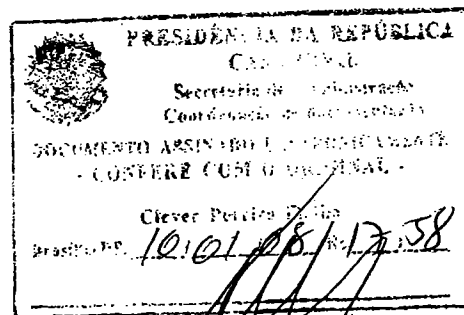 PRESIDÊNCIA DA REPÚBLICA
CASA CIVIL
Secretaria de Administração
Coordenação de
DOCUMENTO ASSINADO ELETRONICAMENTE
- CONFERE COM O ORIGINAL -
Clever Pereira
Brasília-DF, 10/01/08 17:58